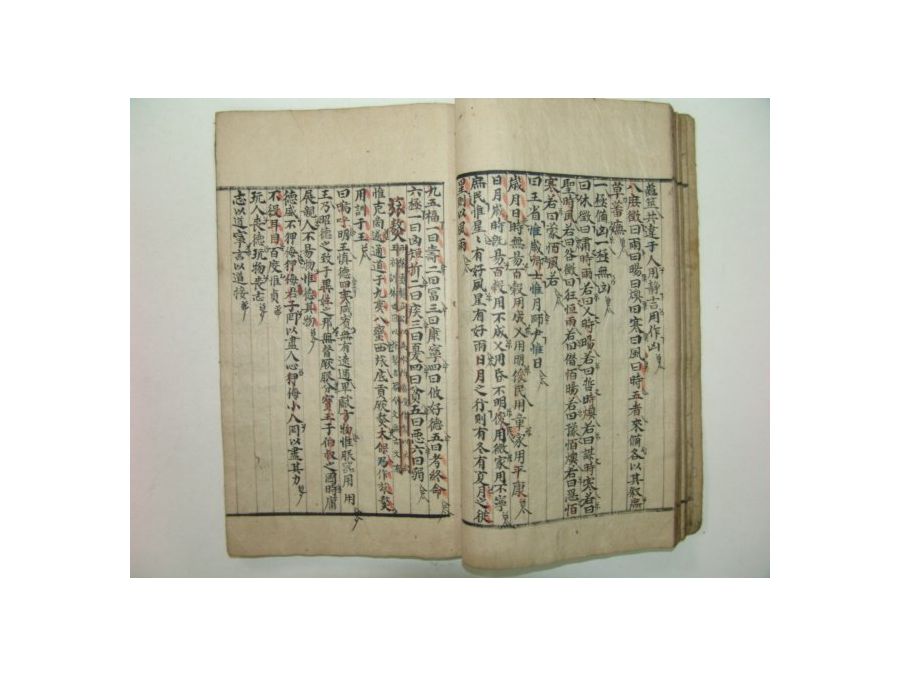 龜筮共違于人用靜吉用作凶
八庶徵曰雨曰暘曰燠曰寒曰風曰時五者來備各以其叙庶
草蕃廡
一極備凶一極無凶
曰休徵曰肅時雨若曰乂時暘若曰哲時燠若曰謀時寒若曰
聖時風若曰咎徵曰狂恒雨若曰僭恒暘若曰豫恒燠若曰急恒
寒若曰蒙恒風若
曰王省惟歲卿士惟月師尹惟日
歲月日時無易百穀用成乂用明俊民用章家用平康
日月歲時旣易百穀用不成乂用昏不明俊民用微家用不寧
庶民惟星星有好風星有好雨日月之行則有冬有夏月之從
星則以風雨
九五福一曰壽二曰冨三曰康寧四曰攸好德五曰考終命
六極一曰凶短折二曰疾三曰憂四曰貧五曰惡六曰弱
旅獒
惟克商遂通道于九夷八蠻西旅底貢厥獒太保乃作旅獒
用訓于王
曰嗚乎明王愼德四夷咸賓無有遠邇畢獻方物惟服食器用
王乃昭德之致于異姓之邦無替厥服分寶玉于伯叔之國時庸
展親人不易物惟德其物
德盛不狎侮狎侮君子罔以盡人心狎侮小人罔以盡其力
不役耳目百度惟貞
玩人喪德玩物喪志
志以道寧言以道接